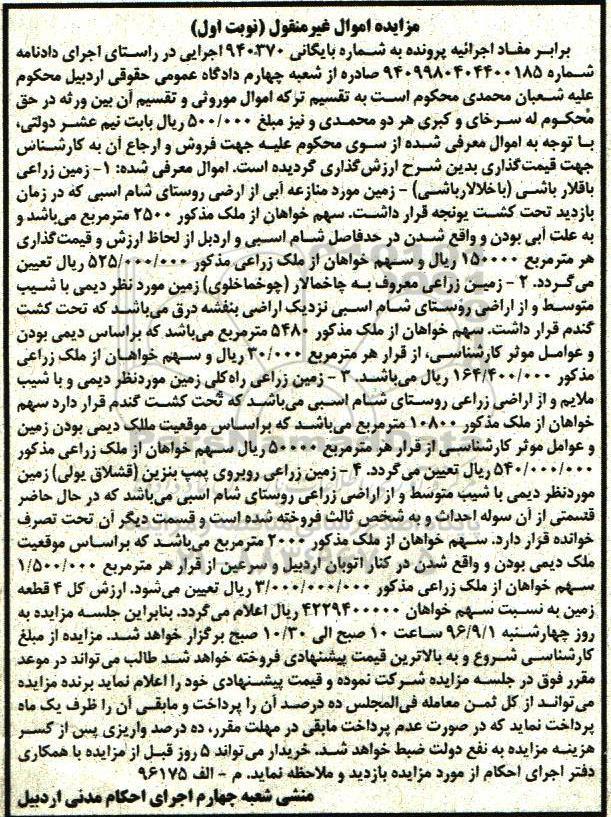 مزایده اموال غیرمنقول (نوبت اول)
برابر مفاد اجرائیه پرونده به شماره بایگانی ۹۴۰۳۷۰ اجرایی در راستای اجرای دادنامه
شماره ۹۴۰۹۹۸۰۴۰۴۴۰۰۱۸۵ صادره از شعبه چهارم دادگاه عمومی حقوقی اردبیل محکوم
علیه شعبان محمدی محکوم است به تقسیم ترکه اموال موروثی و تقسیم آن بین ورثه در حق
محکوم له سرخای و کبری هر دو محمدی و نیز مبلغ ۵۰۰/۰۰۰ ریال بابت نیم عشر دولتی،
با توجه به اموال معرفی شده از سوی محکوم علیه جهت فروش و ارجاع آن به کارشناس
جهت قیمت‌گذاری بدین شرح ارزش‌گذاری گردیده است. اموال معرفی شده: ۱- زمین زراعی
باقلار باشی (باخلالارباشی) - زمین مورد منازعه آبی از ارضی روستای شام اسبی که در زمان
بازدید تحت کشت یونجه قرار داشت. سهم خواهان از ملک مذکور ۲۵۰۰ مترمربع می‌باشد و
به علت آبی بودن و واقع شدن در حدفاصل شام اسبی و اردبل از لحاظ ارزش و قیمت‌گذاری
هر مترمربع ۱۵۰۰۰۰ ریال و سهم خواهان از ملک زراعی مذکور ۵۲۵/۰۰۰/۰۰۰ ریال تعیین
می‌گردد. ۲ - زمین زراعی معروف به چاخمالار (چوخماخلوی) زمین مورد نظر دیمی با شیب
متوسط و از اراضی روستای شام اسبی نزدیک اراضی بنفشه درق می‌باشد که تحت کشت
گندم قرار داشت. سهم خواهان از ملک مذکور ۵۴۸۰ مترمربع می‌باشد که براساس دیمی بودن
و عوامل موثر کارشناسی، از قرار هر مترمربع ۳۰/۰۰۰ ریال و سهم خواهان از ملک زراعی
مذکور ۱۶۴/۴۰۰/۰۰۰ ریال می‌باشد. ۳ - زمین زراعی راه‌کلی زمین موردنظر دیمی و با شیب
ملایم و از اراضی زراعی روستای شام اسبی می‌باشد که تحت کشت گندم قرار دارد سهم
خواهان از ملک مذکور ۱۰۸۰۰ مترمربع می‌باشد که براساس موقعیت مللک دیمی بودن زمین
و عوامل موثر کارشناسی از قرار هر مترمربع ۵۰۰۰۰ ریال سهم خواهان از ملک زراعی مذکور
۵۴۰/۰۰۰/۰۰۰ ریال تعیین می‌گردد. ۴ - زمین زراعی روبروی پمپ بنزین (قشلاق یولی) زمین
موردنظر دیمی با شیب متوسط و از اراضی زراعی روستای شام اسبی می‌باشد که در حال حاضر
قسمتی از آن سوله احداث و به شخص ثالث فروخته شده است و قسمت دیگر آن تحت تصرف
خوانده قرار دارد. سهم خواهان از ملک مذکور ۲۰۰۰ مترمربع می‌باشد که براساس موقعیت
ملک دیمی بودن و واقع شدن در کنار اتوبان اردبیل و سرعین از قرار هر مترمربع ۱/۵۰۰/۰۰۰
سهم خواهان از ملک زراعی مذکور ۳/۰۰۰/۰۰۰/۰۰۰ ریال تعیین می‌شود. ارزش کل ۴ قطعه
زمین به نسبت سهم خواهان ۴۲۲۹۴۰۰۰۰۰ ریال اعلام می‌گردد. بنابراین جلسه مزایده به
روز چهارشنبه ۹۶/۹/۱ ساعت ۱۰ صبح الی ۱۰/۳۰ صبح برگزار خواهد شد. مزایده از مبلغ
کارشناسی شروع و به بالاترین قیمت پیشنهادی فروخته خواهد شد طالب می‌تواند در موعد
مقرر فوق در جلسه مزایده شرکت نموده و قیمت پیشنهادی خود را اعلام نماید برنده مزایده
می‌تواند از کل ثمن معامله فی‌المجلس ده درصد آن را پرداخت و مابقی آن را ظرف یک ماه
پرداخت نماید که در صورت عدم پرداخت مابقی در مهلت مقرر، ده درصد واریزی پس از کسر
هزینه مزایده به نفع دولت ضبط خواهد شد. خریدار می‌تواند ۵ روز قبل از مزایده با همکاری
دفتر اجرای احکام از مورد مزایده بازدید و ملاحظه نماید. م - الف ۹۶۱۷۵
منشی شعبه چهارم اجرای احکام مدنی اردبیل